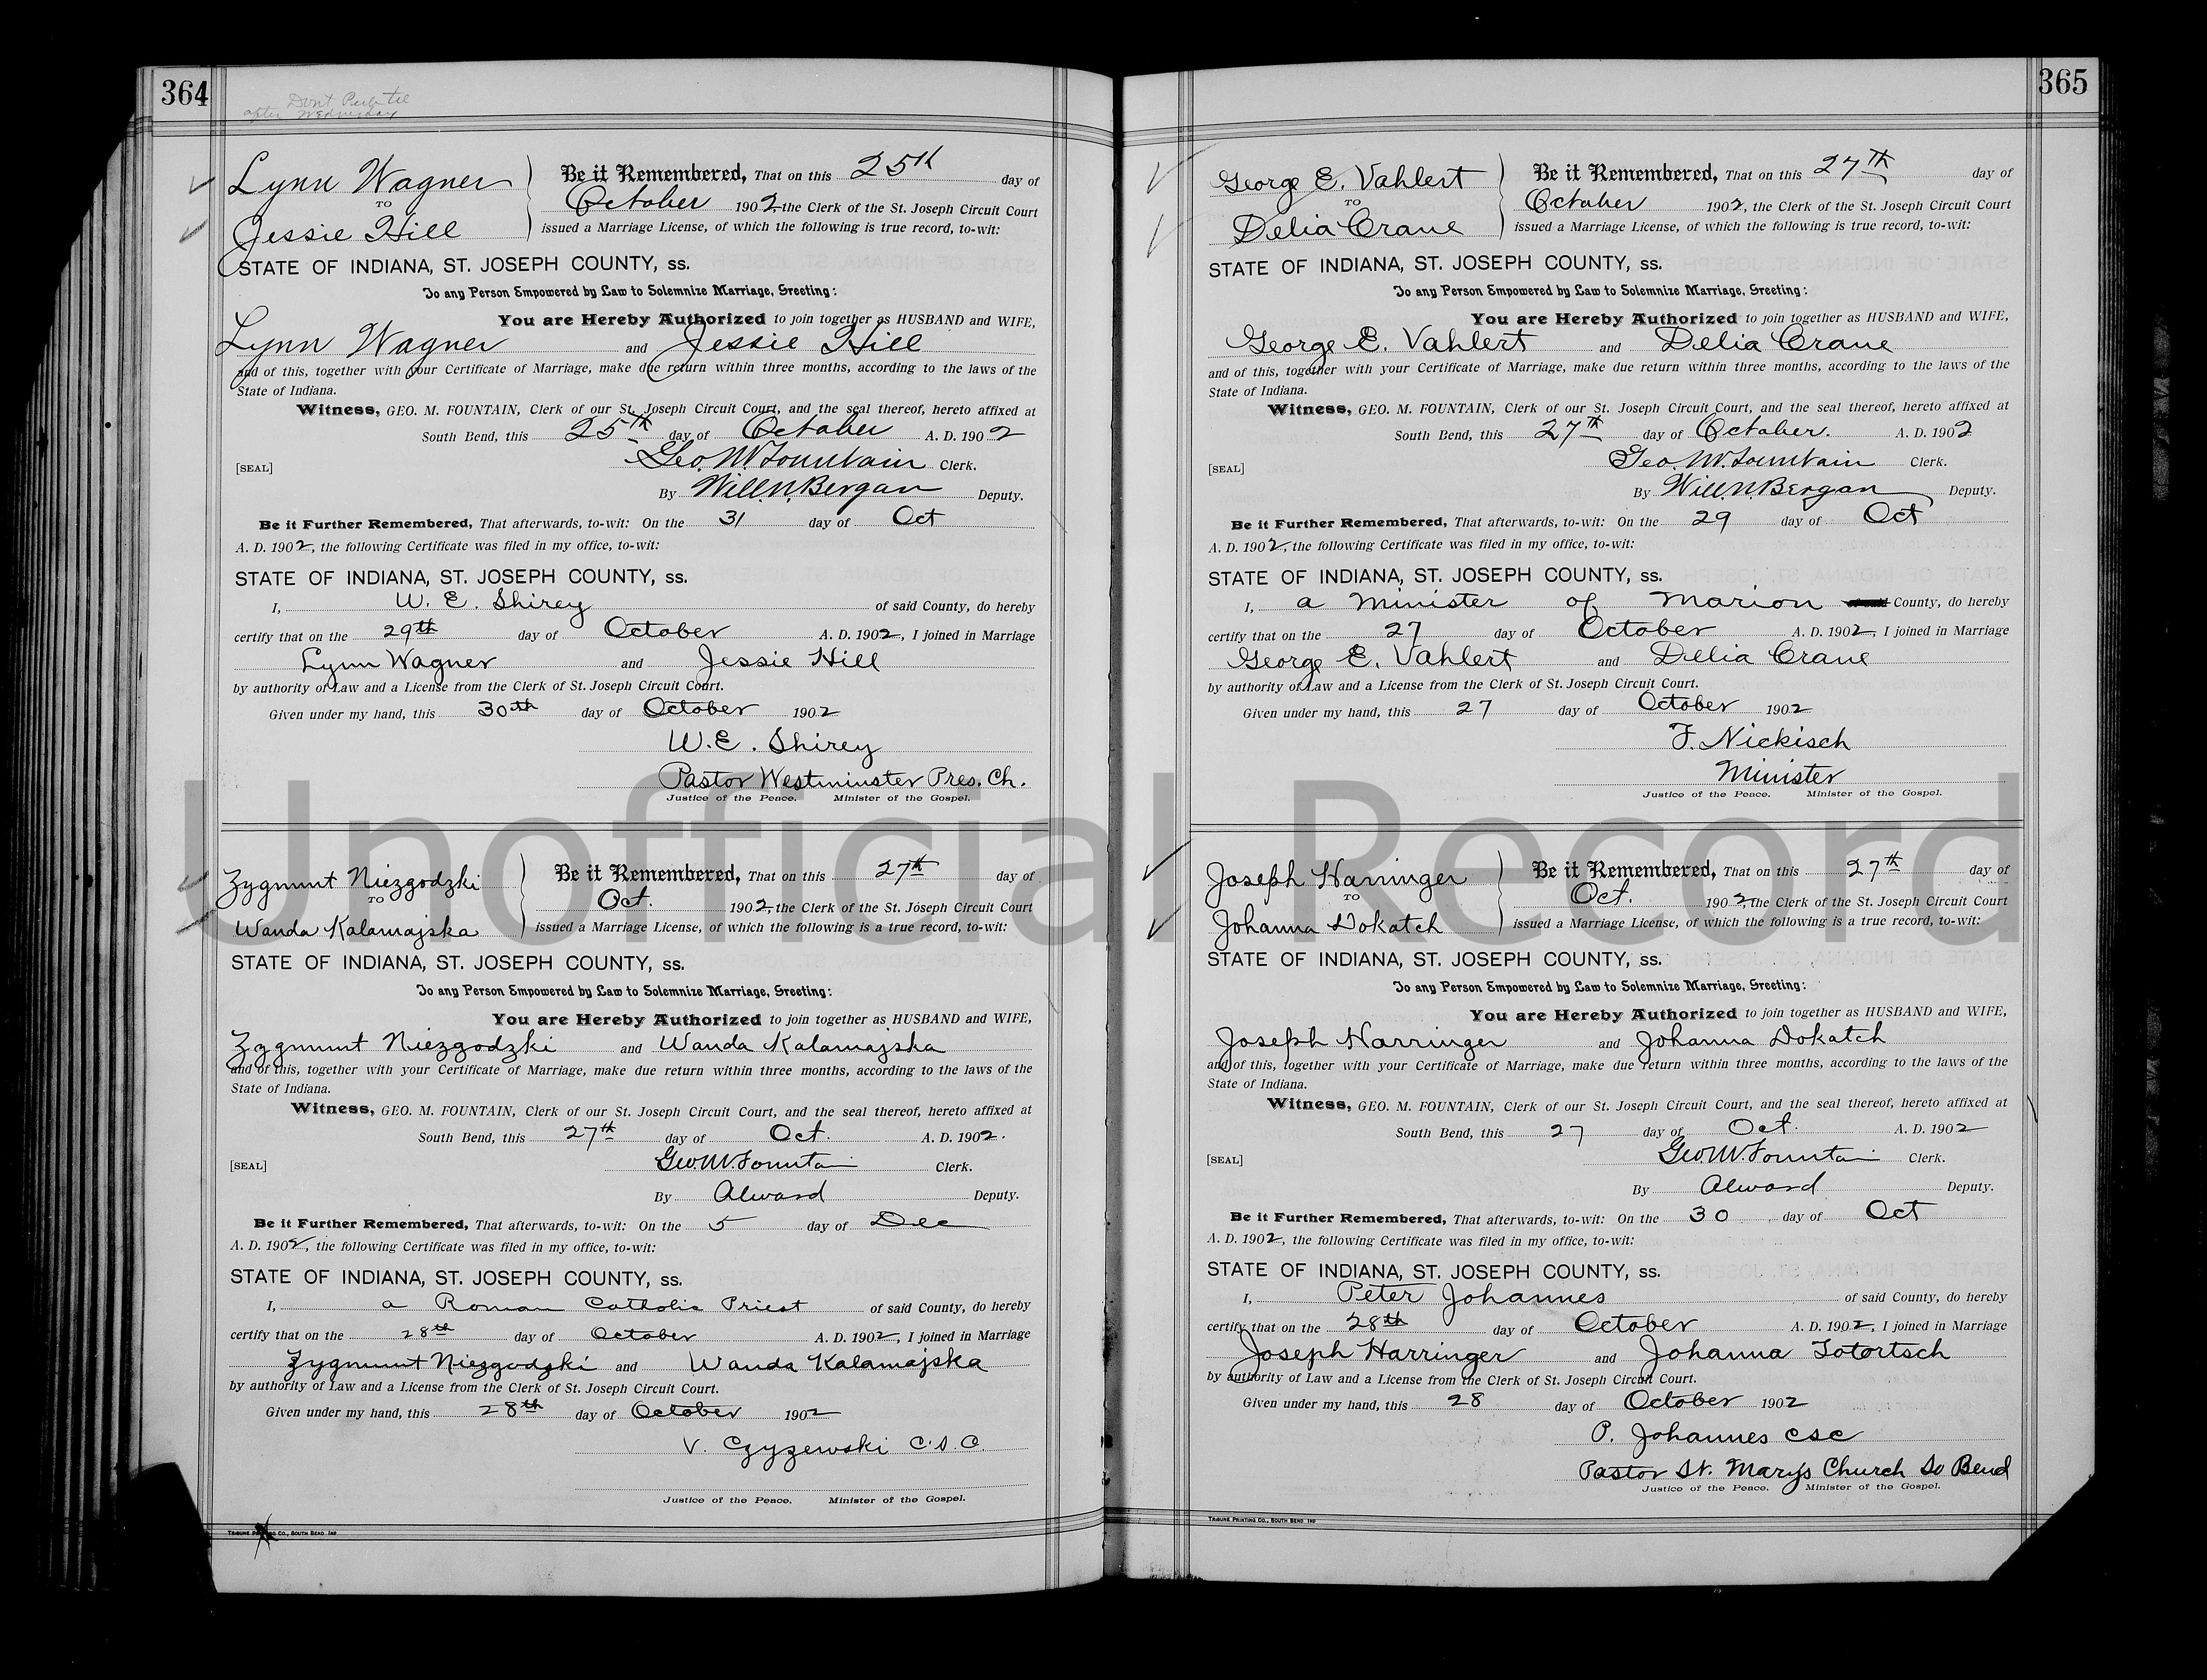 364
Don't Publish
after Wednesday
Lynn Wagner
TO
Jessie Hill
Be it Remembered, That on this 25th day of
October 1902, the Clerk of the St. Joseph Circuit Court
issued a Marriage License, of which the following is true record, to-wit:
STATE OF INDIANA, ST. JOSEPH COUNTY, ss.
To any Person Empowered by Law to Solemnize Marriage, Greeting:
You are Hereby Authorized to join together as HUSBAND and WIFE,
Lynn Wagner and Jessie Hill
and of this, together with your Certificate of Marriage, make due return within three months, according to the laws of the
State of Indiana.
Witness, GEO. M. FOUNTAIN, Clerk of our St. Joseph Circuit Court, and the seal thereof, hereto affixed at
South Bend, this 25th day of October A. D. 1902
[SEAL] Geo. M. Fountain Clerk.
By Will. N. Bergan Deputy.
Be it Further Remembered, That afterwards, to-wit: On the 31 day of Oct
A. D. 1902, the following Certificate was filed in my office, to-wit:
STATE OF INDIANA, ST. JOSEPH COUNTY, ss.
I, W. E. Shirey of said County, do hereby
certify that on the 29th day of October A. D. 1902, I joined in Marriage
Lynn Wagner and Jessie Hill
by authority of Law and a License from the Clerk of St. Joseph Circuit Court.
Given under my hand, this 30th day of October 1902
W. E. Shirey
Pastor Westminster Pres. Ch.
Justice of the Peace. Minister of the Gospel.
Zygmunt Niezgodzki
TO
Wanda Kalamajska
Be it Remembered, That on this 27th day of
Oct. 1902, the Clerk of the St. Joseph Circuit Court
issued a Marriage License, of which the following is a true record, to-wit:
STATE OF INDIANA, ST. JOSEPH COUNTY, ss.
To any Person Empowered by Law to Solemnize Marriage, Greeting:
You are Hereby Authorized to join together as HUSBAND and WIFE,
Zygmunt Niezgodzki and Wanda Kalamajska
and of this, together with your Certificate of Marriage, make due return within three months, according to the laws of the
State of Indiana.
Witness, GEO. M. FOUNTAIN, Clerk of our St. Joseph Circuit Court, and the seal thereof, hereto affixed at
South Bend, this 27th day of Oct. A. D. 1902.
[SEAL] Geo. M. Fountain Clerk.
By Alward Deputy.
Be it Further Remembered, That afterwards, to-wit: On the 5 day of Dec
A. D. 1902, the following Certificate was filed in my office, to-wit:
STATE OF INDIANA, ST. JOSEPH COUNTY, ss.
I, a Roman Catholic Priest of said County, do hereby
certify that on the 28th day of October A. D. 1902, I joined in Marriage
Zygmunt Niezgodzki and Wanda Kalamajska
by authority of Law and a License from the Clerk of St. Joseph Circuit Court.
Given under my hand, this 28th day of October 1902
V. Czyzewski C.S.C.
Justice of the Peace. Minister of the Gospel.
TRIBUNE PRINTING CO., SOUTH BEND IND
365
George E. Vahlert
TO
Delia Crane
Be it Remembered, That on this 27th day of
October 1902, the Clerk of the St. Joseph Circuit Court
issued a Marriage License, of which the following is true record, to-wit:
STATE OF INDIANA, ST. JOSEPH COUNTY, ss.
To any Person Empowered by Law to Solemnize Marriage, Greeting:
You are Hereby Authorized to join together as HUSBAND and WIFE,
George E. Vahlert and Delia Crane
and of this, together with your Certificate of Marriage, make due return within three months, according to the laws of the
State of Indiana.
Witness, GEO. M. FOUNTAIN, Clerk of our St. Joseph Circuit Court, and the seal thereof, hereto affixed at
South Bend, this 27th day of October. A. D. 1902
[SEAL] Geo. M. Fountain Clerk.
By Will. N. Bergan Deputy.
Be it Further Remembered, That afterwards, to-wit: On the 29 day of Oct
A. D. 1902, the following Certificate was filed in my office, to-wit:
STATE OF INDIANA, ST. JOSEPH COUNTY, ss.
I, a Minister of Marion County, do hereby
certify that on the 27 day of October A. D. 1902, I joined in Marriage
George E. Vahlert and Dellia Crane
by authority of Law and a License from the Clerk of St. Joseph Circuit Court.
Given under my hand, this 27 day of October 1902
F. Nickisch
Minister
Justice of the Peace. Minister of the Gospel.
Joseph Harringer
TO
Johanna Dokatch
Be it Remembered, That on this 27th day of
Oct. 1902, the Clerk of the St. Joseph Circuit Court
issued a Marriage License, of which the following is a true record, to-wit:
STATE OF INDIANA, ST. JOSEPH COUNTY, ss.
To any Person Empowered by Law to Solemnize Marriage, Greeting:
You are Hereby Authorized to join together as HUSBAND and WIFE,
Joseph Harringer and Johanna Dokatch
and of this, together with your Certificate of Marriage, make due return within three months, according to the laws of the
State of Indiana.
Witness, GEO. M. FOUNTAIN, Clerk of our St. Joseph Circuit Court, and the seal thereof, hereto affixed at
South Bend, this 27 day of Oct. A. D. 1902
[SEAL] Geo. M. Fountain Clerk.
By Alward Deputy.
Be it Further Remembered, That afterwards, to-wit: On the 30 day of Oct
A. D. 1902, the following Certificate was filed in my office, to-wit:
STATE OF INDIANA, ST. JOSEPH COUNTY, ss.
I, Peter Johannes of said County, do hereby
certify that on the 28th day of October A. D. 1902, I joined in Marriage
Joseph Harringer and Johanna Totortsch
by authority of Law and a License from the Clerk of St. Joseph Circuit Court.
Given under my hand, this 28 day of October 1902
P. Johannes csc
Pastor St. Marys Church So Bend
Justice of the Peace. Minister of the Gospel.
TRIBUNE PRINTING CO., SOUTH BEND IND
Unofficial Record